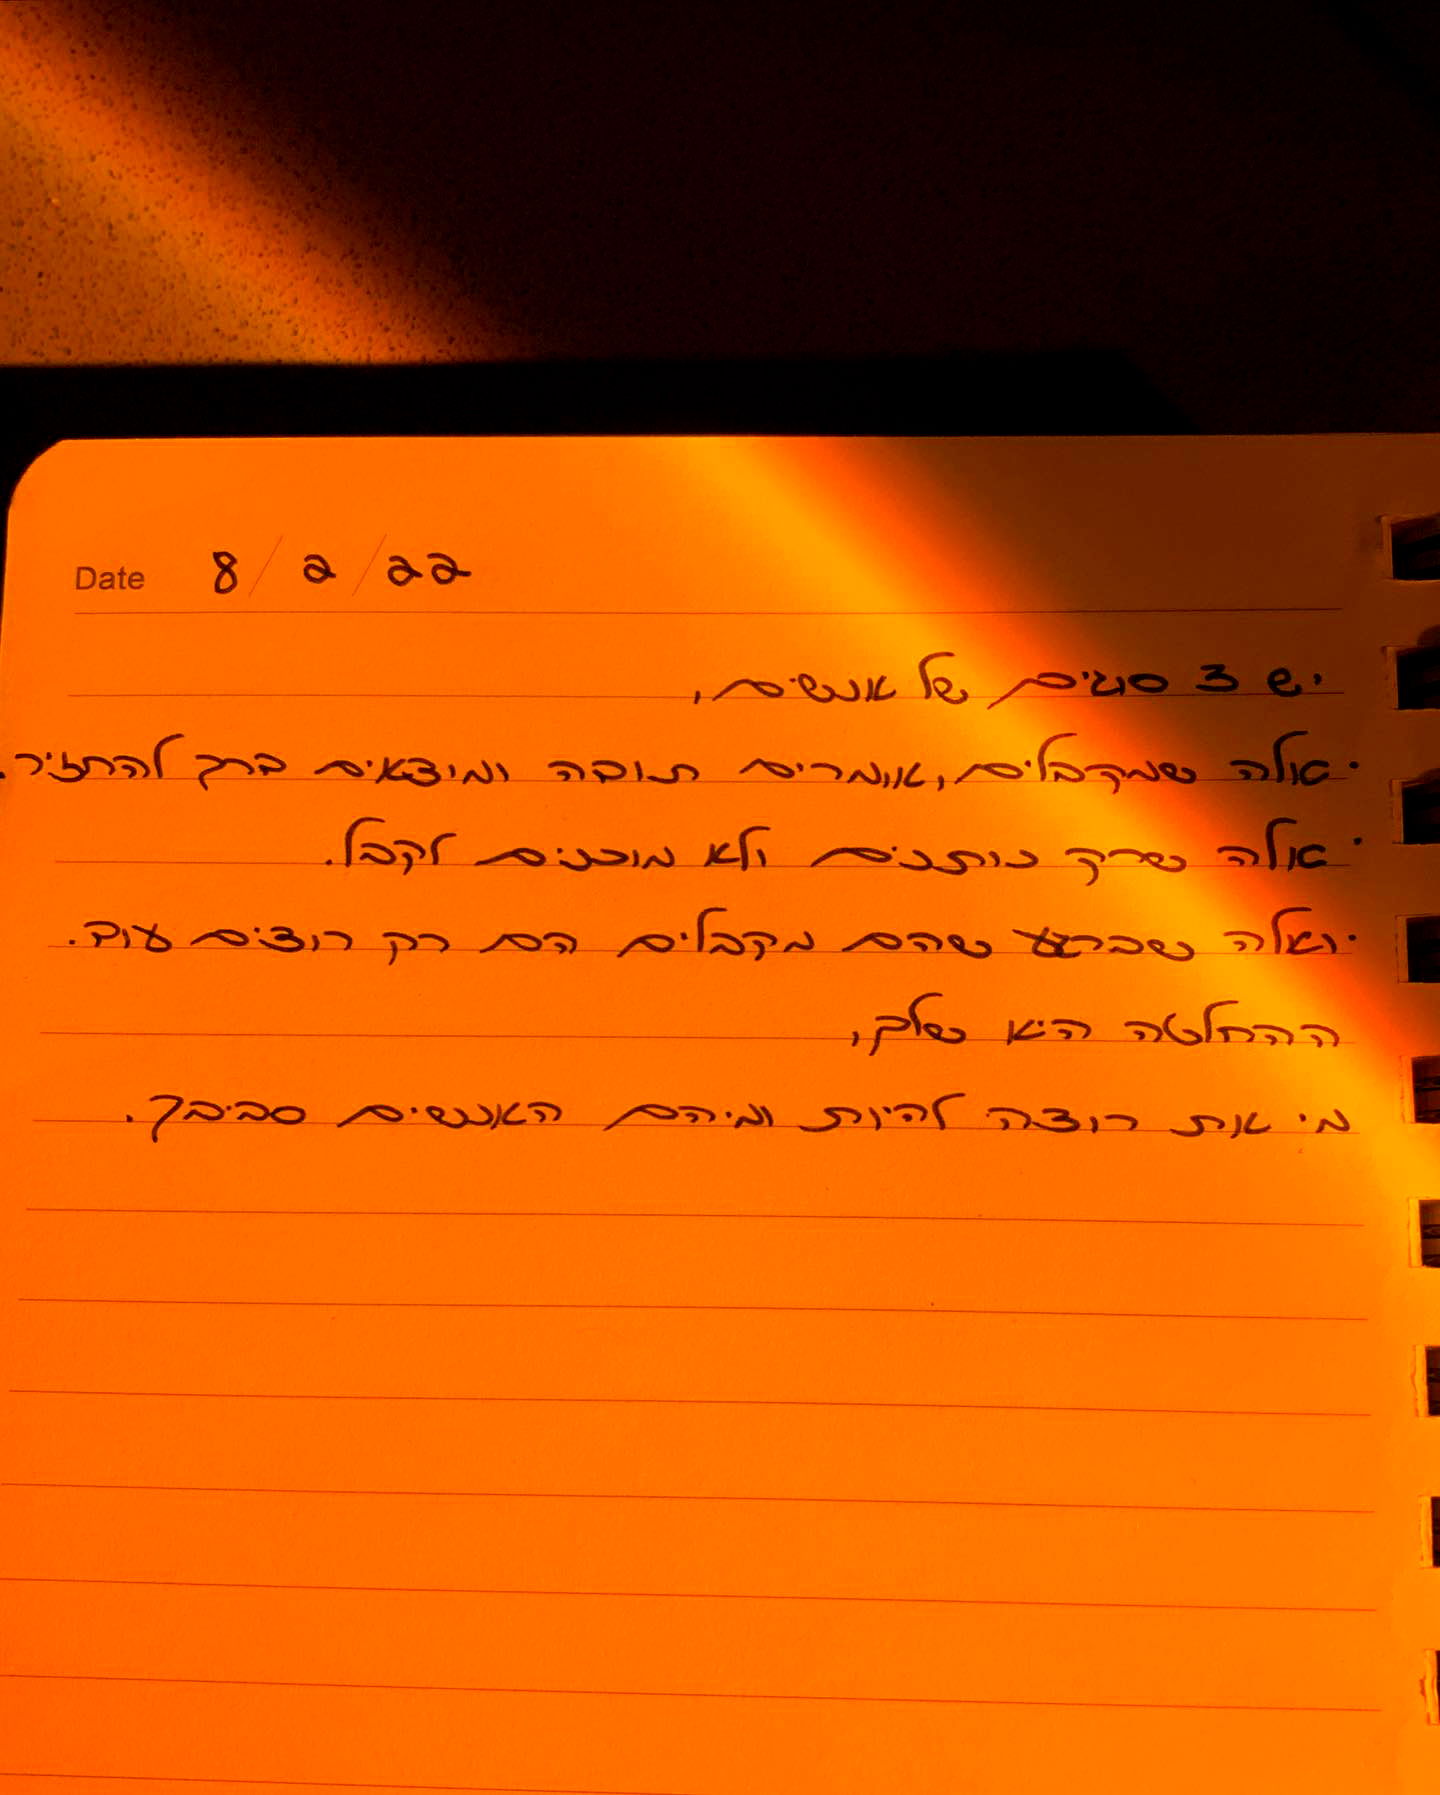 Date 8/2/22
יש 3 סוגים של אנשים,
·אלה שמקבלים, אומרים תודה ומוצאים דרך להחזיר.
·אלה שרק נותנים ולא מוכנים לקבל.
·ואלה שברגע שהם מקבלים הם רק רוצים עוד.
ההחלטה היא שלך,
מי את רוצה להיות ומיהם האנשים סביבך.